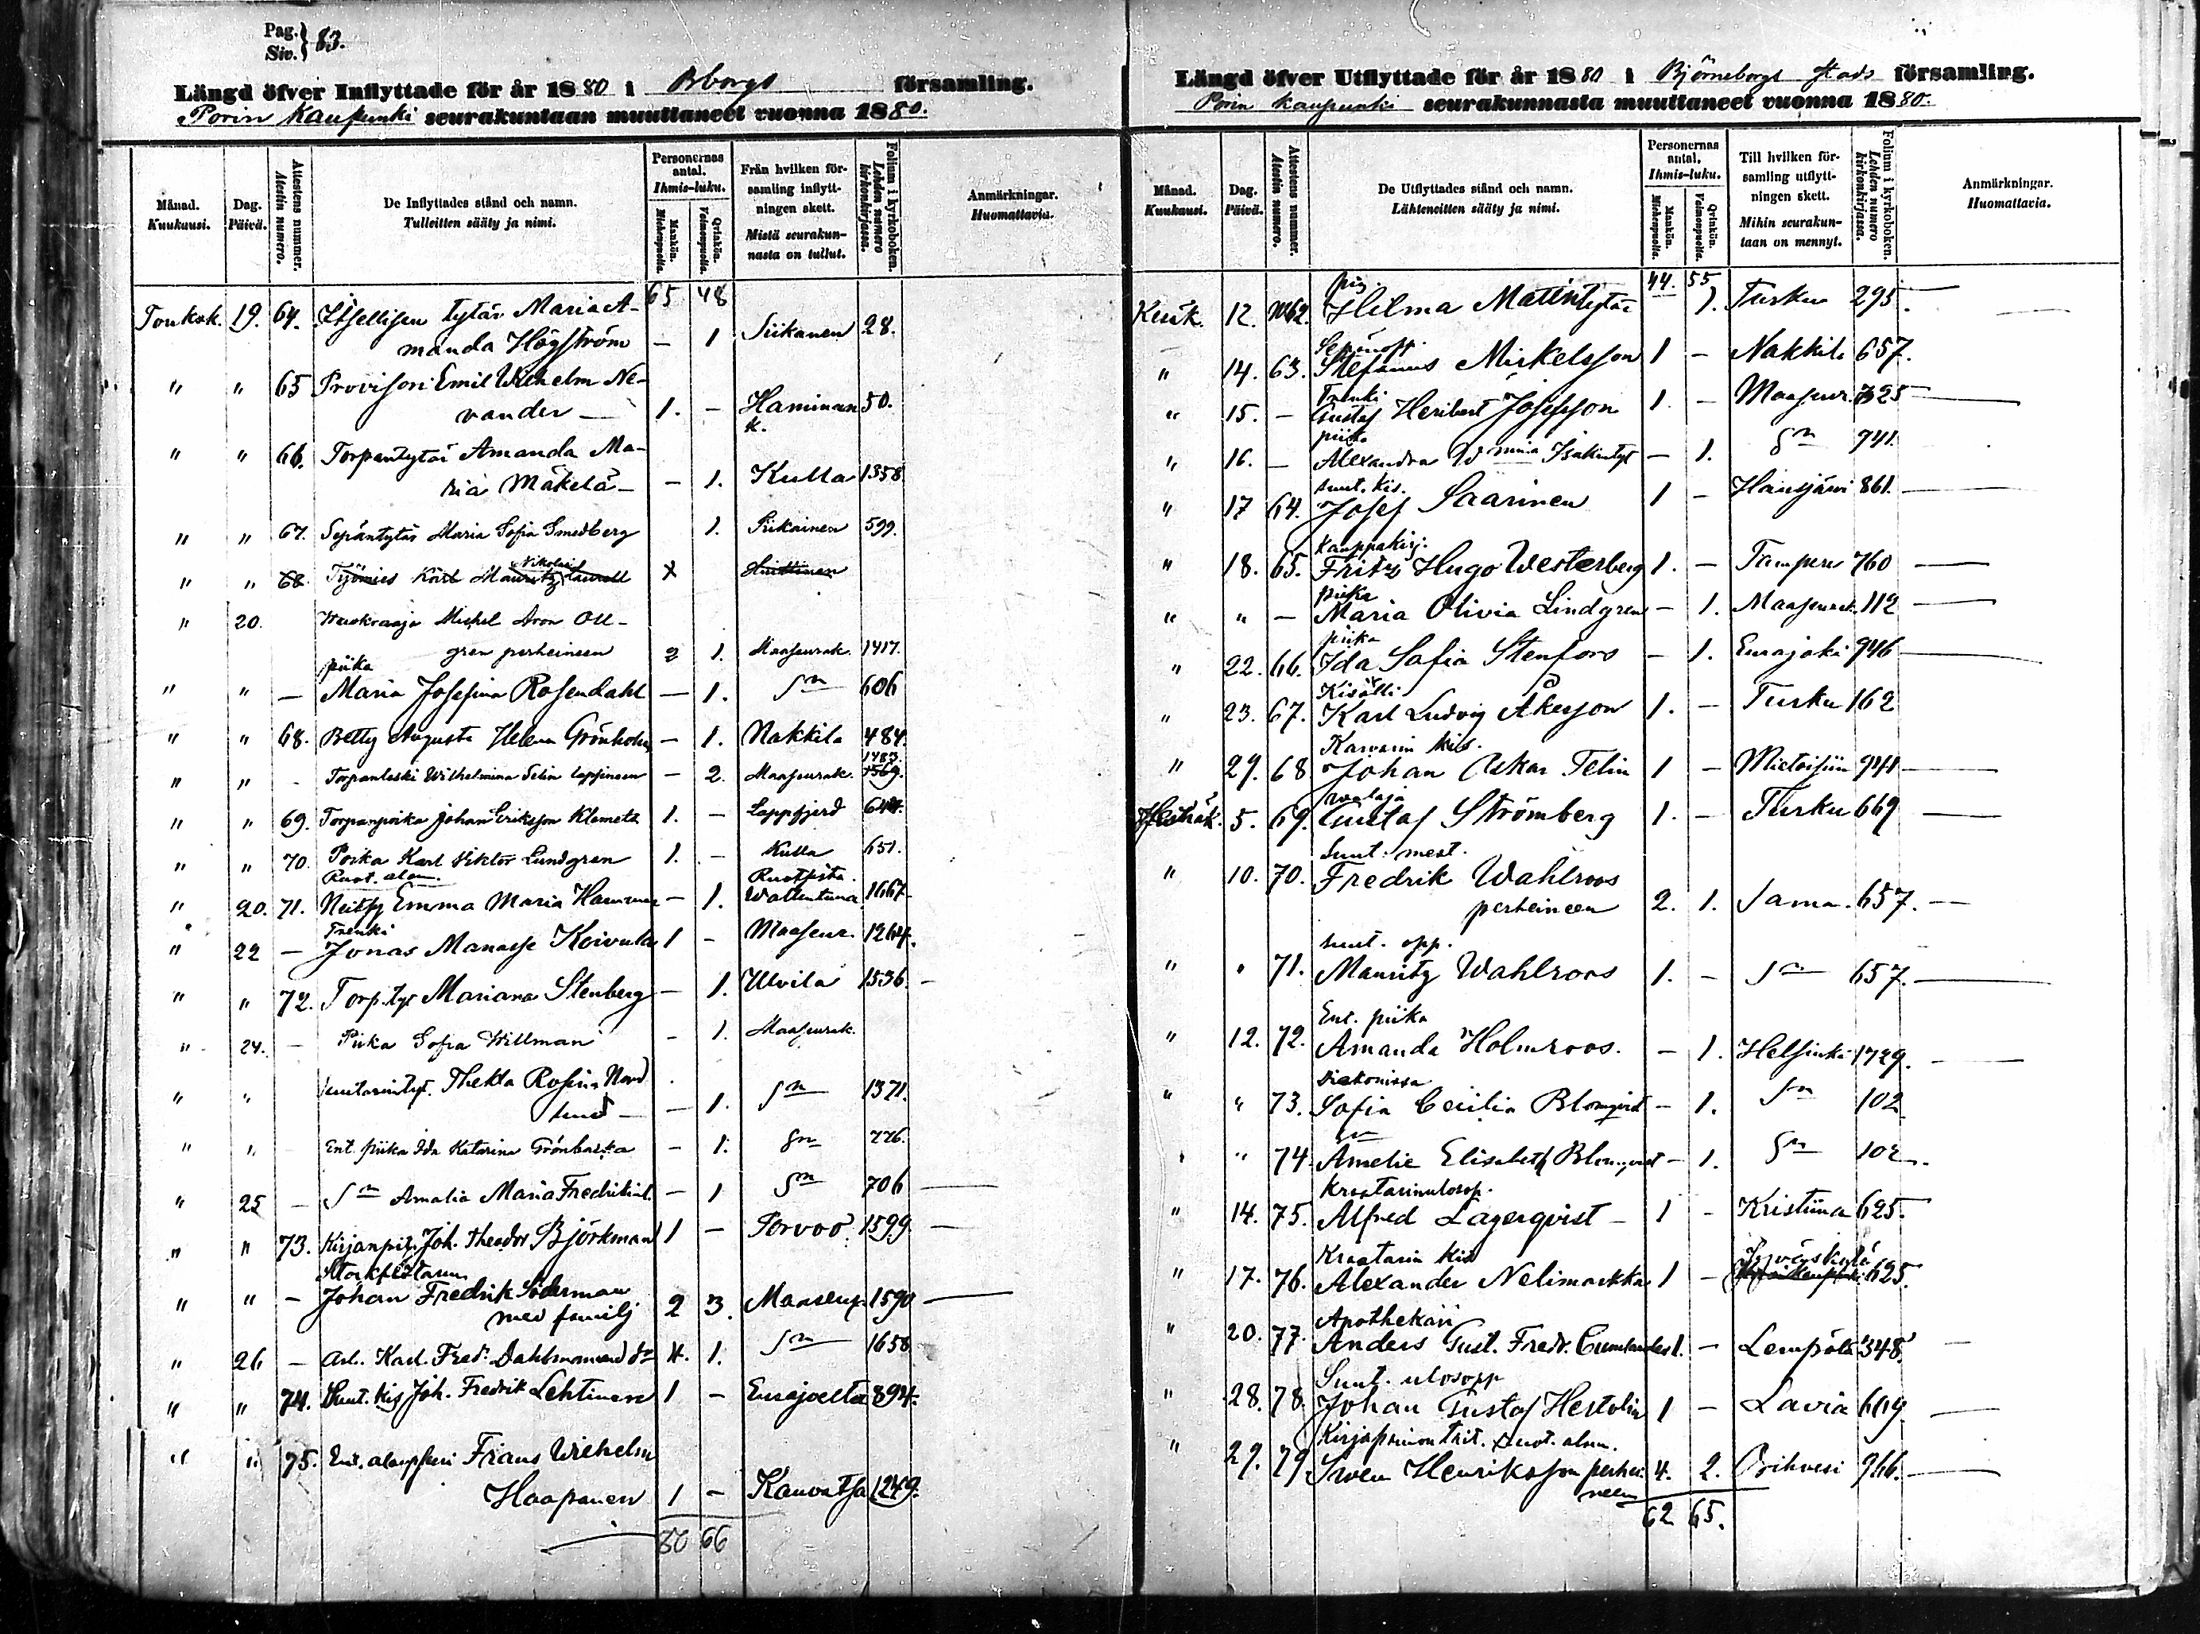 Pag. Siv. } 83.
Längd öfver Inflyttade för år 1880 i Bborgs församling.
Porin Kaupunki seurakuntaan muuttaneet vuonna 1880.
Månad. Kuukausi.
Dag. Päivä.
Attestens nummer. Atestin numero.
De Inflyttades stånd och namn. Tulleitten sääty ja nimi.
Personernas antal. Ihmis-luku.
Mankön. Miehenpuolia.
Qvinkön. Vaimonpuolia.
Från hvilken församling inflyttningen skett. Mistä seurakunnasta on tullut.
Folium i kyrkoboken. Lehden numero kirkonkirjassa.
Anmärkningar. Huomattavia.
65 48
Toukok. 19. 64. Itsellisen tytär Maria A-
manda Högström — 1 Siikanen 28.
" " 65 Provisori Emil Wilhelm Ne-
vander — 1. — Haminan k. 50.
" " 66. Torpantytär Amanda Ma-
ria Mäkelä — — 1. Kulla 1358
" " 67. Sepäntytär Maria Sofia Smedberg 1. Siikainen 599.
" " 68. Työmies Karl Mauritz Nikolai Laurell X Huittinen
" 20. Michel Aron Oll-
gren perheineen 2 1. Maaseurak. 1417.
piika
" " — Maria Josefina Rosendahl — 1. Sn 606
" " 68. Betty Augusta Helena Grönholm — 1. Nakkila 484.
1483.
" " - Torpanleski Wilhelmina Selin lapsineen — 2. Maaseurak. 1569.
" " 69. Torpanpoika Johan Eriksson Klemets 1. — Lappfjerd 644.
" " 70. Poika Karl Viktor Lundgren 1. — Kulla 651.
Ruot. alam. Ruotsista.
" 20. 71. Neitsy Emma Maria Hammar — 1. Wallentuna 1667
Trenki
" 22 — Jonas Manasse Koivula 1 - Maaseur. 1264.
" " 72. Torp.tyt Mariana Stenberg — 1. Ulvila 1536. —
" 24. — Piika Sofia Willman - 1. Maaseurak.
" " Thekla Rosina Nord
lund — — 1. Sn 1371.
" " Ent. piika Ida Katarina Grönbacka — 1. Sn 776.
" 25 — Sn Amalia Maria — 1 Sn 706 —
" " 73. Kirjanpit. Joh. Theodor Björkman 1 — Porvoo 1599. —
" " — Johan Fredrik Söderman
med familj 2 3. Maaseur. 1590 —
" 26 — Arb. Karl Fred. 4. 1. Sn 1658
" " 74. Sunt. kis Joh. Fredrik Lehtinen 1 — Eurajoelta 894.
" " 75. Ent. Frans Wilhelm
Haapanen 1 — Kauvatsa 1249.
80 66
Längd öfver Utflyttade för år 1880 i Björneborgs stads församling.
Porin kaupunki seurakunnasta muuttaneet vuonna 1880.
Månad. Kuukausi.
Dag. Päivä.
Attestens nummer. Atestin numero.
De Utflyttades stånd och namn. Lähteneitten sääty ja nimi.
Personernas antal. Ihmis-luku.
Mankön. Miehenpuolia.
Qvinkön. Vaimonpuolia.
Till hvilken församling utflyttningen skett. Mihin seurakuntaan on mennyt.
Folium i kyrkoboken. Lehden numero kirkonkirjassa.
Anmärkningar. Huomattavia.
pig. 44. 55
Kesäk. 12. 62. Hilma Matintytär 1. Turku 295. —
Sepänopp.
" 14. 63. Stefanus Mickelsson 1 — Nakkila 657.
Trenki
" 15. — Gustaf Heribert Josefsson 1. - Maaseur. 325 —
piika
" 16. — Alexandra Wmina Isakintyt — 1. Sn 941.
sunt. kis.
" 17 64. Josef Saarinen 1 — Hausjärvi 861. —
Kauppakirj.
" 18. 65. Fritz Hugo Westerberg 1. — Tampere 760 —
piika
" " — Maria Olivia Lindgren — 1. Maaseurak. 112 —
piika
" 22. 66. Ida Sofia Stenfors — 1. Eurajoki 946 —
Kisälli
" 23. 67. Karl Ludvig Åkesson 1. — Turku 162
Karvarin kis.
" 29. 68 Johan Oskar Telin 1 — Mietoisiin 941 —
Heinäk. 5. 69. Gustaf Strömberg 1. — Turku 669 —
Sunt. mest.
" 10. 70. Fredrik Wahlroos
perheineen 2. 1. Sama. 657. —
sunt. opp.
" " 71. Mauritz Wahlroos 1. - Sn 657. —
Ent. piika
" 12. 72. Amanda Holmroos. — 1. Helsinki 1729. —
Diakonissa
" " 73. Sofia Cecilia Blomqvist — 1. Sn 102
Sn
" " 74. Amelie Elisabeth Blomqvist — 1. Sn 102.
" 14. 75. Alfred Lagerqvist — 1 - Kristiina 625.
Kraatarin kis
" 17. 76. Alexander Nelimarkka 1 — Jyväskylä 625.
Apothekari
" 20. 77 Anders Gust. Fredr. 1. — Lempäälä 348. —
Sunt. ulosopp
" 28. 78. Johan Gustaf 1 — Lavia 609 —
Kirjapainon Ruot. alam.
" 29. 79. Swen Henriksson perhei-
neen 4. 2. Orihvesi 966. —
62 65.